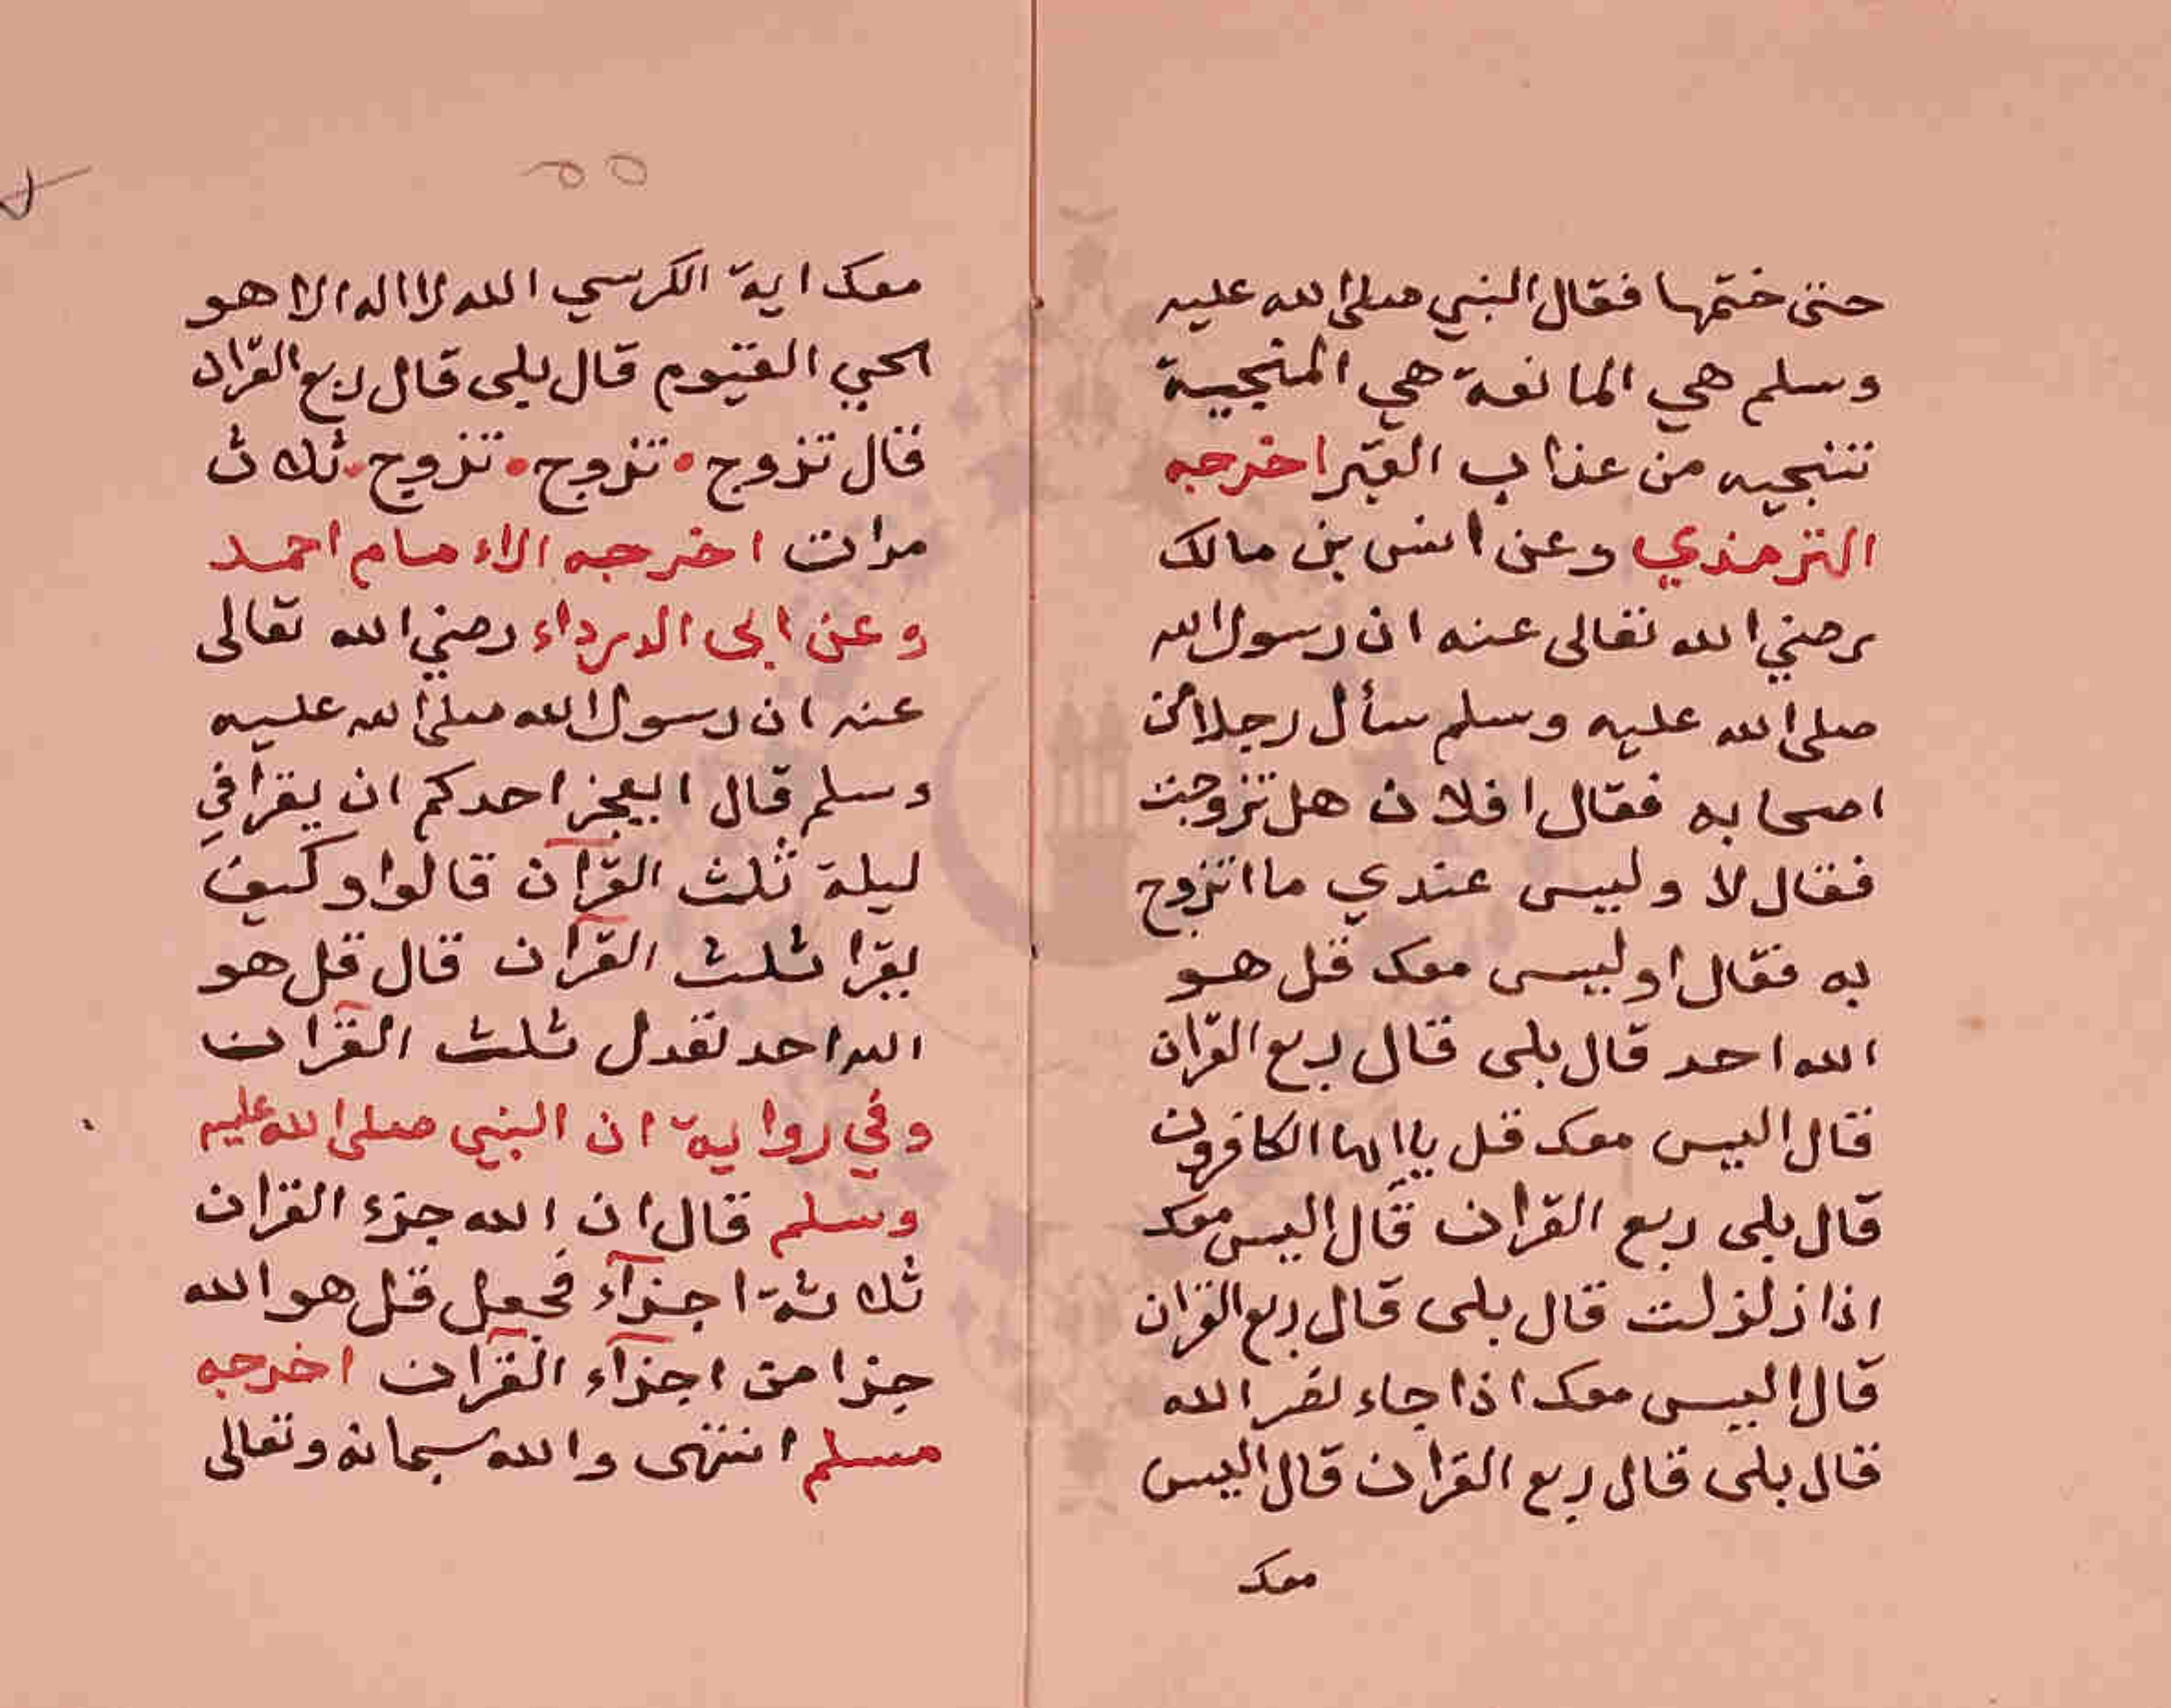 حتى ختمها فقال النبي صلى الله عليه
وسلم هي المانعة هي المنجية
تنجيه من عذاب القبر اخرجه
الترمذي وعن انس بن مالك
رضي الله تعالى عنه ان رسول الله
صلى الله عليه وسلم سأل رجلا من
اصحابه فقال افلان هل تزوجت
فقال لا وليس عندي ما اتزوج
به فقال اوليس معك قل هو
الله احد قال بلى قال ربع القرآن
قال اليس معك قل يا ايها الكافرون
قال بلى ربع القران قال اليس معك
اذا زلزلت قال بلى قال ربع القران
قال اليس معك اذا جاء نصر الله
قال بلى قال ربع القران قال اليس
معك
٥٥
معك اية الكرسي الله لا اله الا هو
الحي القيوم قال بلى قال ربع القران
قال تزوج • تزوج • تزوج • ثلاث
مرات اخرجه الاء مام احمد
وعن ابى الدرداء رضي الله تعالى
عنه ان رسول الله صلى الله عليه
وسلم قال ايعجز احدكم ان يقرأ في
ليلة ثلث القرآن قالوا وكيف
يقرا ثلث القرآن قال قل هو
الله احد تعدل ثلث القرآن
وفي رواية ان النبي صلى الله عليه
وسلم قال ان الله جزء القران
ثلاثة اجزآء فجعل قل هو الله
جزا من اجزآء القرآن اخرجه
مسلم انتهى والله سبحانه وتعالى